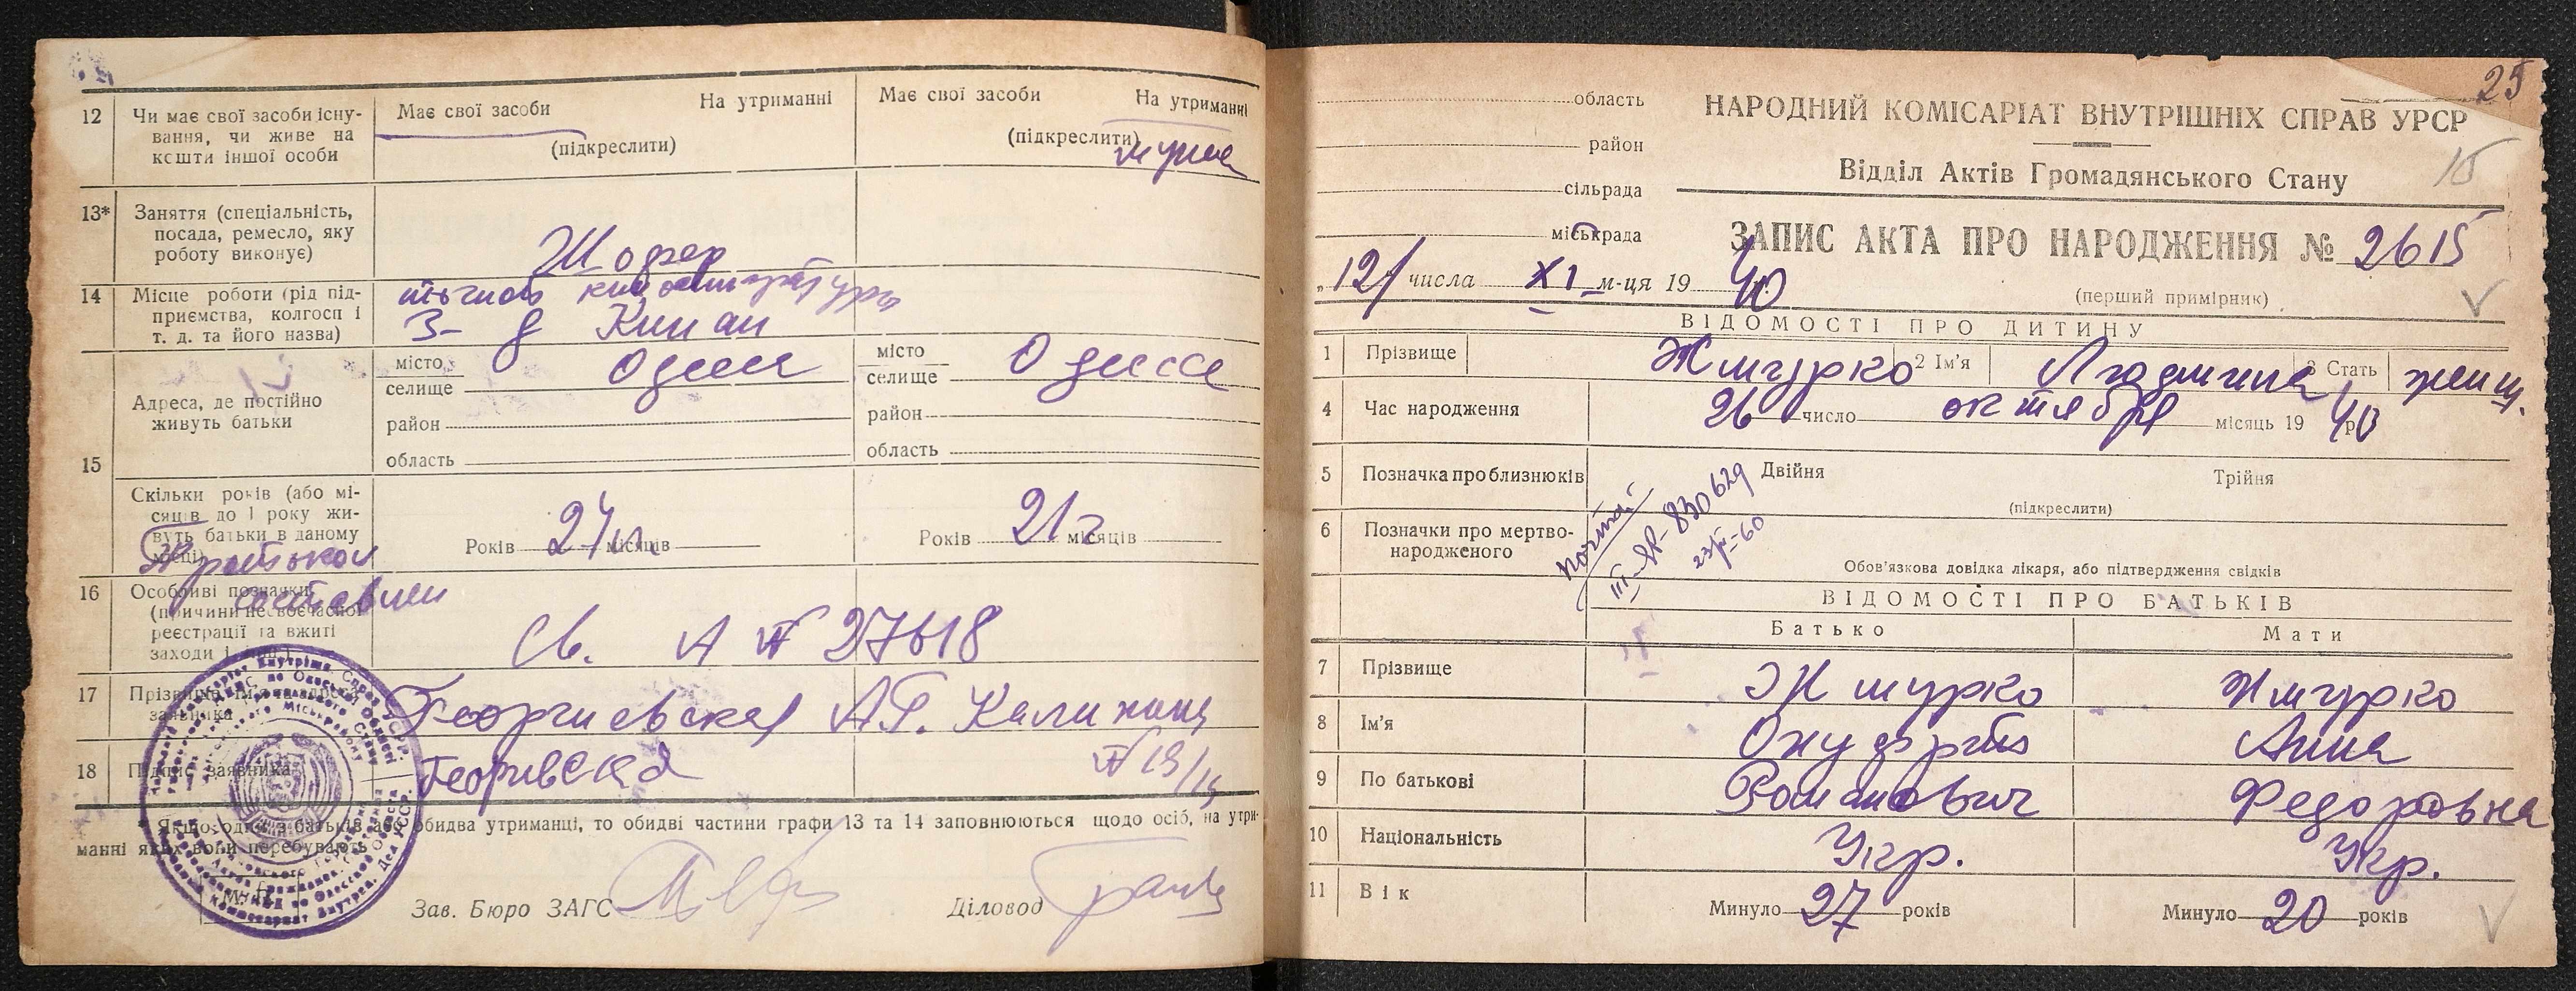 12 Чи має свої засоби існу-
вання, чи живе на
кошти іншої особи
Має свої засоби На утриманні
(підкреслити)
Має свої засоби На утриманні
(підкреслити)
мужа
13* Заняття (спеціальність,
посада, ремесло, яку
роботу виконує)
Шофер
14 Місце роботи (рід під-
приємства, колгосп і
т. д. та його назва)
точной киноаппаратуры
З-д Кинап
15 Адреса, де постійно
живуть батьки
місто Одесса
селище
район
область
місто Одесса
селище
район
область
Скільки років (або мі-
сяців до 1 року жи-
вуть батьки в даному
місці)
Років 27 л. місяців
Років 21 г місяців
16 Особливі позначки
(причини несвоєчасної
реєстрації та вжиті
заходи і інш.)
Св. А № 27618
17 Прізвище, ім'я та адреса
заявника
Георгиевская А.Г.
18 Підпис заявника
№ 19/14
* Якщо один з батьків або обидва утриманці, то обидві частини графи 13 та 14 заповнюються щодо осіб, на утри-
манні яких вони перебувають
Зав. Бюро ЗАГС Діловод
25
область
район
сільрада
міськрада
НАРОДНИЙ КОМІСАРІАТ ВНУТРІШНІХ СПРАВ УРСР
Відділ Актів Громадянського Стану
15
ЗАПИС АКТА ПРО НАРОДЖЕННЯ № 2615
„12" числа XI м-ця 1940
(перший примірник)
ВІДОМОСТІ ПРО ДИТИНУ
1 Прізвище Жмурко 2 Ім'я Людмила 3 Стать женщ.
4 Час народження 26 число октября місяць 1940 р.
5 Позначка про близнюків Двійня Трійня
(підкреслити)
6 Позначки про мертво-
народженого
Обов'язкова довідка лікаря, або підтвердження свідків
830629
ВІДОМОСТІ ПРО БАТЬКІВ
Батько Мати
7 Прізвище Жмурко Жмурко
8 Ім'я Онуфрий Анна
9 По батькові Романович Федоровна
10 Національність Укр. Укр.
11 Вік Минуло 27 років Минуло 20 років